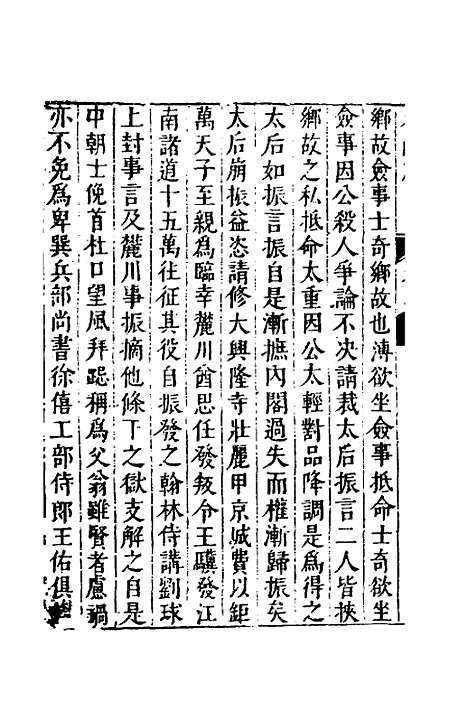 鄉故僉事士奇鄉故也溥欲坐僉事抵命士奇欲坐
僉事因公殺人爭論不决請裁太后振言二人皆挾
鄉故之私抵命太重因公太輕對品降調是爲得之
太后如振言振自是漸摭內閣過失而權漸歸振矣
太后崩振益恣請修大興隆寺壯麗甲京城費以鉅
萬天子至親爲臨幸麓川酋思任發叛令王驥發江
南諸道十五萬往征其役自振發之翰林侍講劉球
上封事言及麓川事振摘他條下之獄支解之自是
中朝士俛首杜口望風拜跽稱爲父翁雖賢者慮禍
亦不免爲卑巽兵部尚書徐僖工部侍郎王佑俱